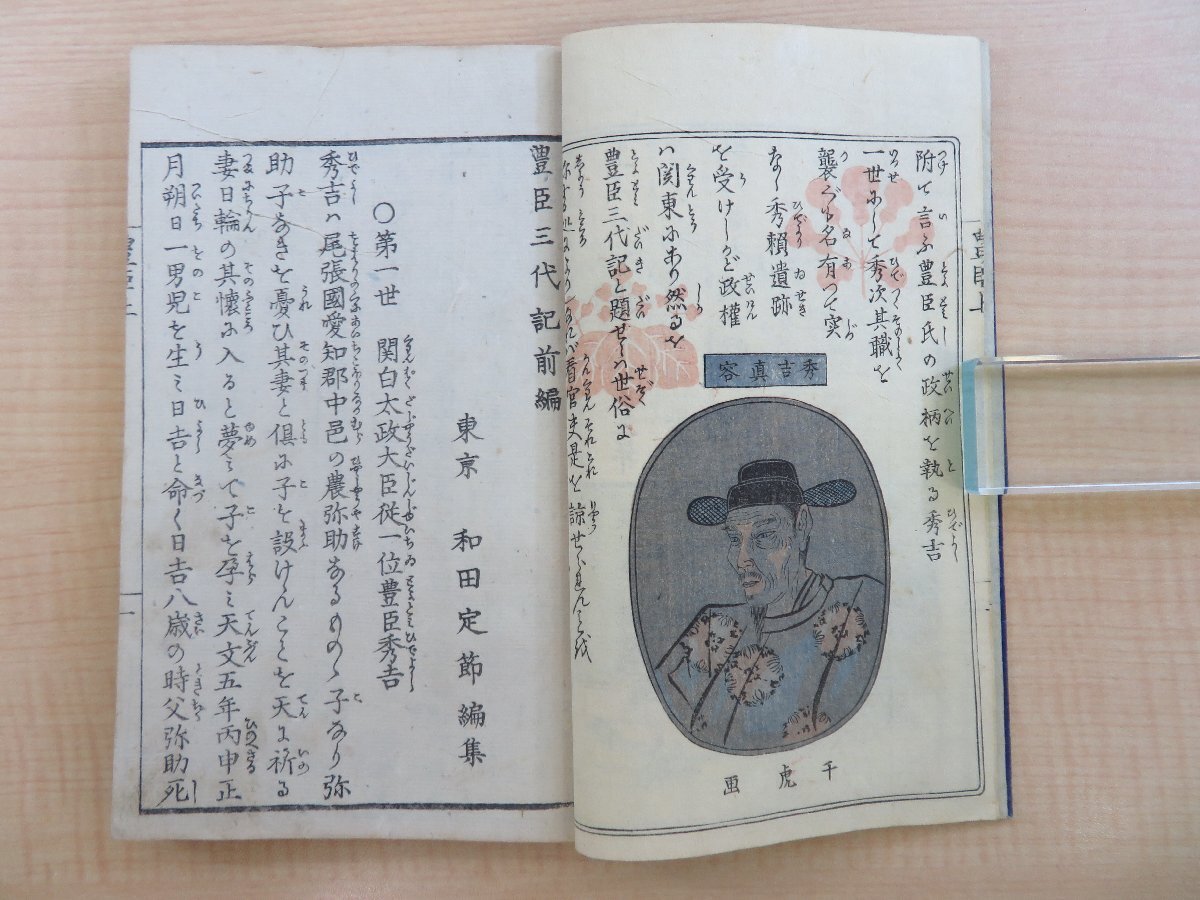 附て言ふ豊臣氏の政柄を執る秀吉
一世にして秀次其職を
襲ぐも名有つて実
なし秀頼遺跡
を受けしかど政権
ハ関東にあり然るを
豊臣三代記と題せしハ世俗に
看官
是を諒せよ
秀吉真容
千虎画
豊臣三代記前編
東京 和田定節編集
〇第一世 関白太政大臣従一位豊臣秀吉
秀吉ハ尾張國愛知郡中邑の農弥助なるものゝ子なり弥
助子なきを憂ひ其妻と倶に子を設けんことを天に祈る
妻日輪の其懐に入ると夢ミて子を孕ミ天文五年丙申正
月朔日一男児を生ミ日吉と命く日吉八歳の時父弥助死